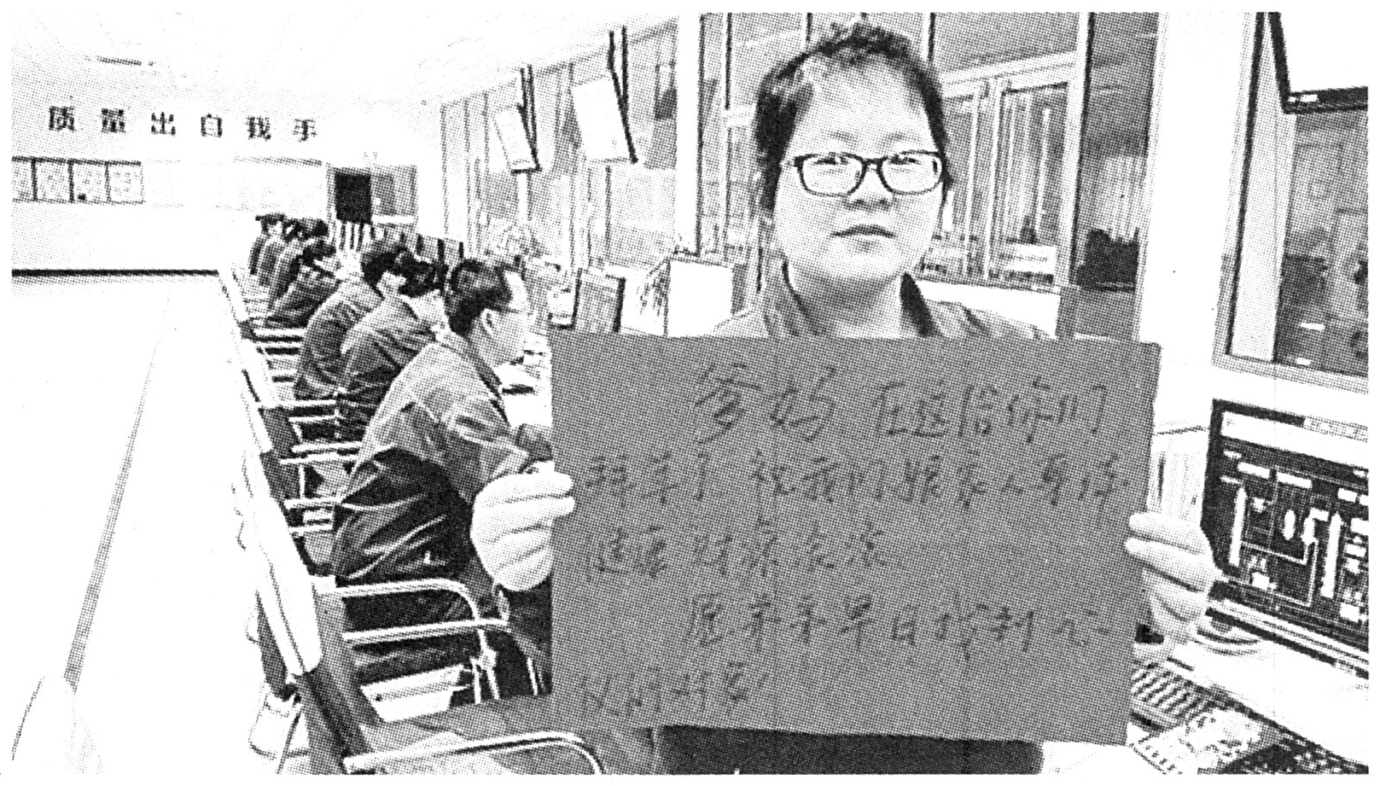 质量出自我手
爹妈 在这给你们
拜年了 祝我们娘家人身体
健康 财源滚滚。
愿弟弟早日找到心
仪的对象